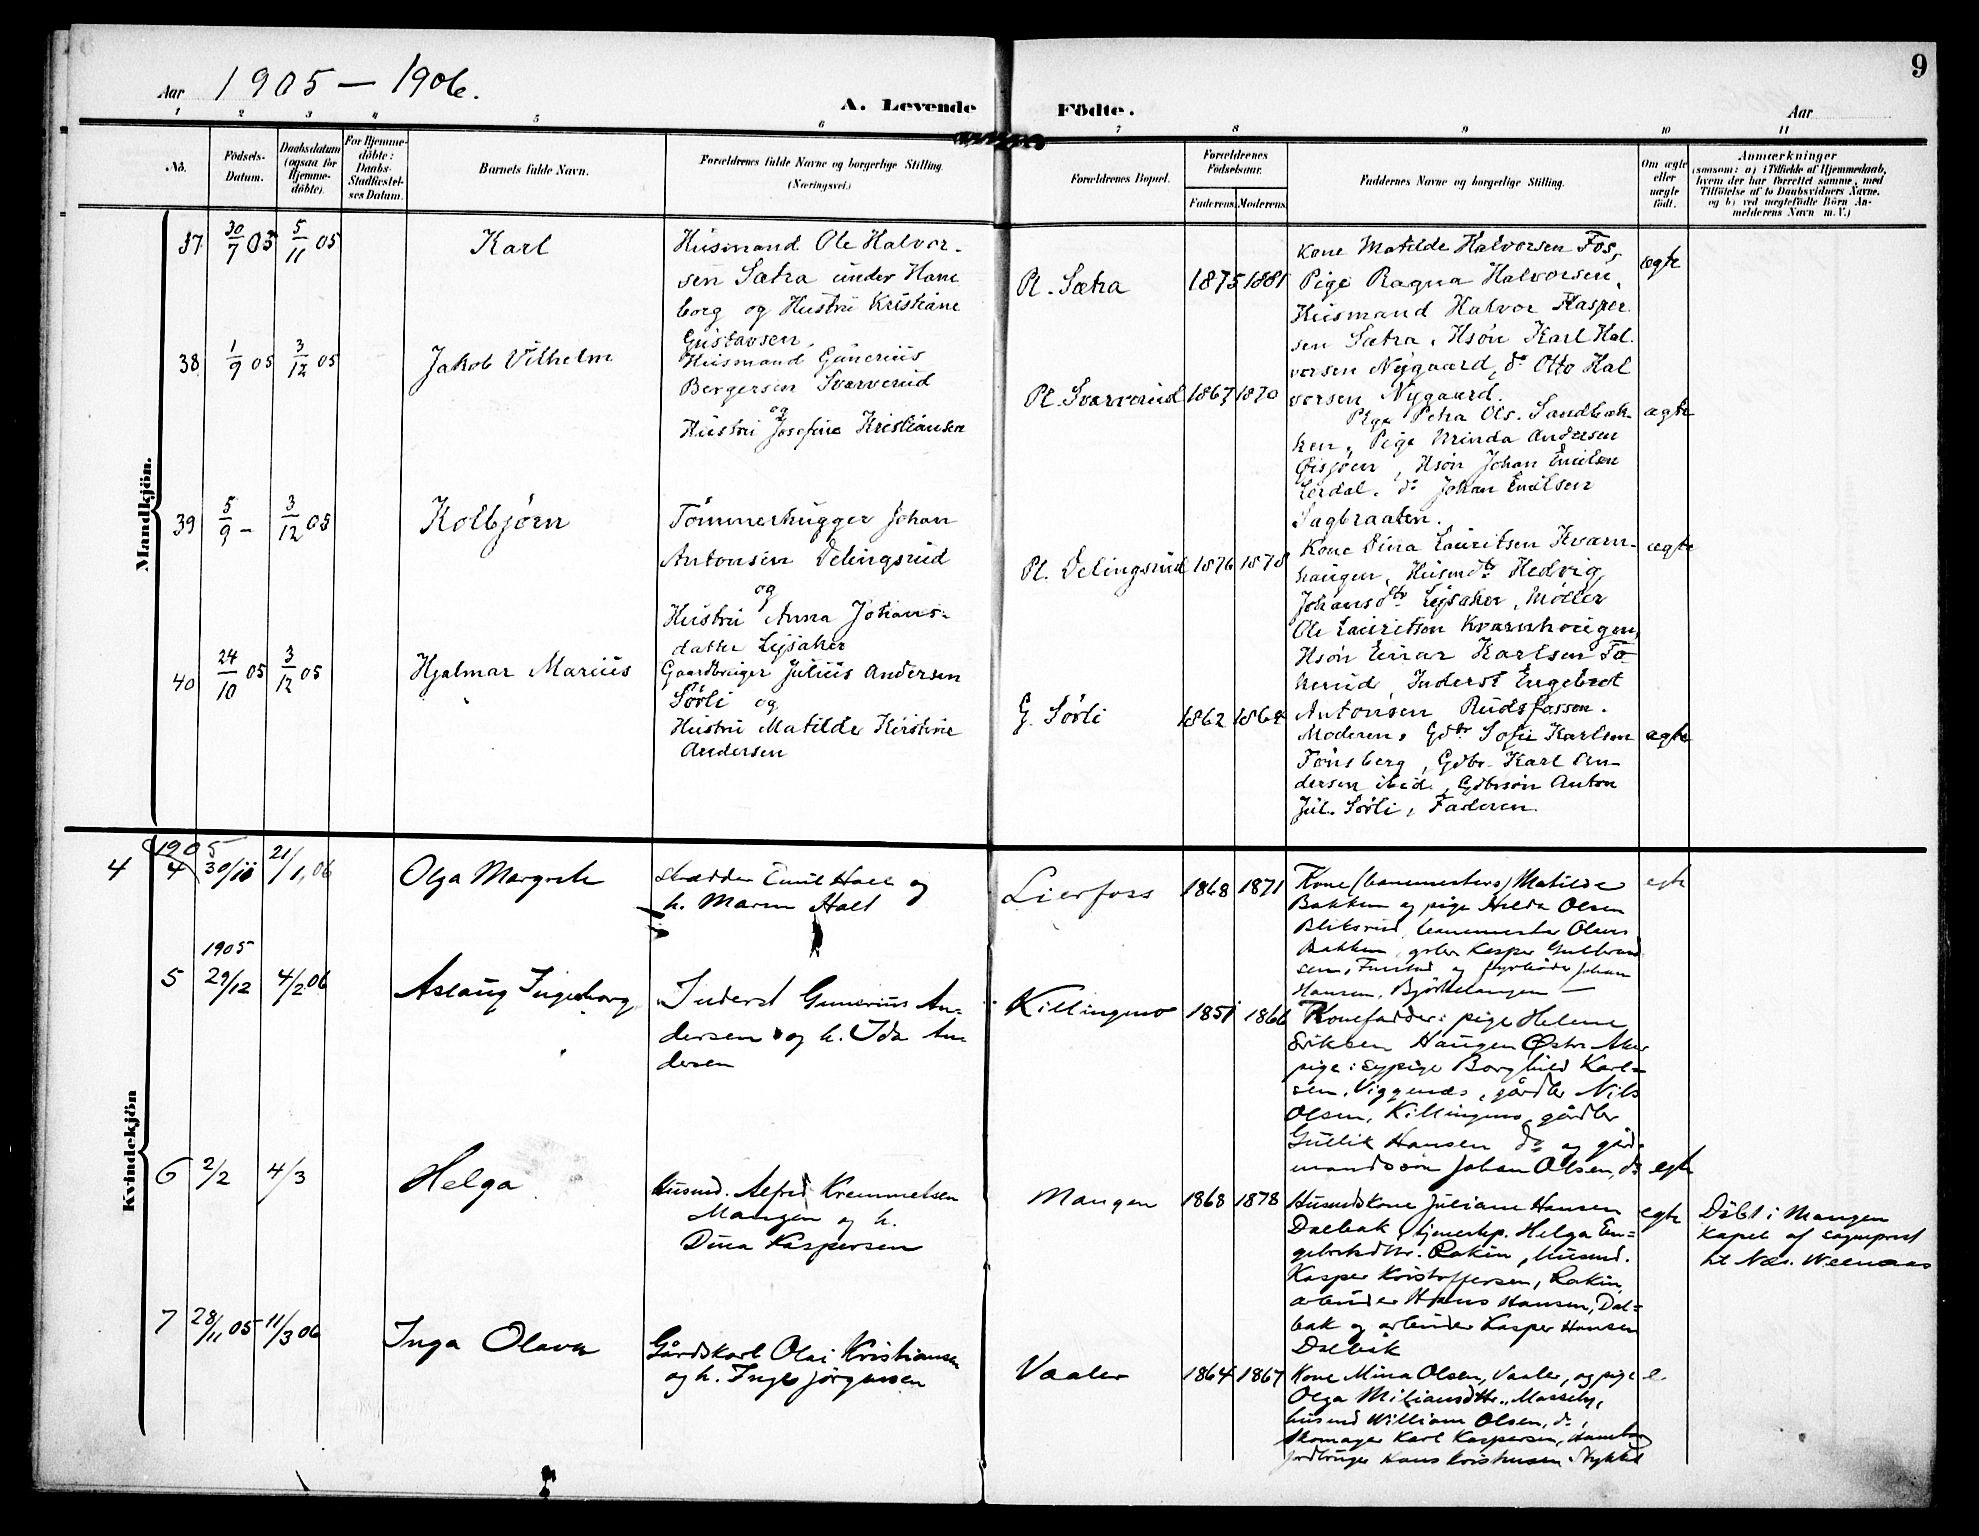 Aar 1905 — 1906.
A. Levende Födte.
Aar
9
1 2 3 4 5 6 7 8 9 10 11
No.
Födsels-Datum.
Daabsdatum (ogsaa for Hjemme-döbte).
For Hjemme-döbte: Daabs-Stadfæstel-ses Datum.
Barnets fulde Navn.
Forældrenes fulde Navne og borgerlige Stilling.
(Næringsvei.)
Forældrenes Bopæl.
Forældrenes Födselsaar.
Faderens. Moderens.
Faddernes Navne og borgerlige Stilling.
Om ægte eller uægte födt.
Anmærkninger
(saasom: a) i Tilfælde af Hjemmedaab,
hvem der har forrettet samme, med
Tilföielse af to Daabsvidners Navne,
og b) ved uægtefödte Börn An-
melderens Navn m. V.)
Mandkjön.
37 30/7 05 5/11 05 Karl
Husmand Ole Halvor-
sen Sætra under Hane
borg og Hustru Kristiane
Gustavsen.
Pl. Sætra 1875 1881
Kone Matilde Halvorsen Fos,
Pige Ragna Halvorsen,
Husmand Halvor Kasper
sen Sætra, Hsön Karl Hal
vorsen Nygaard, do Otto Hal
vorsen Nygaard.
ægte
38 1/9 05 3/12 05 Jakob Vilhelm
Husmand Gunerius
Bergersen Svarverud
og
Hustru Josefine Kristiansen
Pl. Svarverud 1867 1870
Pige Petra Ols. Sandbæk-
ken, Pige Minda Andersen
Öisjöen, Hsön Johan Emilsen
Lerdal, do Johan Emilsen
Sagbraaten.
ægte
39 5/9 – 3/12 05 Kolbjörn
Tömmerhugger Johan
Antonsen Delingsrud
og
Hustru Anna Johans-
datter Lysaker
Pl. Delingsrud 1876 1878
Kone Dina Lauritsen Kvarn-
haugen, Husmdtr Hedvig
Johansdtr Lysaker, Möller
Ole Lauritsen Kvarnhaugen,
Hsön Einar Karlsen To
kerud, Inderst Engebret
Antonsen Rudsfossen.
ægte
40 24/10 05 3/12 05 Hjalmar Marius
Gaardbruger Julius Andersen
Sörli og
Hustru Matilde Kirstine
Andersen
G. Sörli 1862 1864
Moderen, Gdtr Sofie Karlsen
Tönsberg, Gdbr. Karl An-
dersen ibid, Gdbrsön Anton
Jul. Sörli, Faderen.
ægte
Kvindekjön
1905
4 4 30/10 21/1,06 Olga Margrete
skrædder Emil Holt og
h. Maren Holt
Lierfoss 1868 1871
Kone (banemesters) Matilde
Bakken og pige Hilda Olsen
Bliksrud, banemester Olaus
Bakken, grbr Kasper Gulbrand
sen, og fyrböder Johan
Hansen, Bjørkelangen —
egte
1905
5 29/12 4/2 06 Aslaug Ingeborg
Inderst Gunerius An-
dersen og h. Ida An
dersen
Killingmo 1851 1866
Konefadder: pige Helene
Eriksen Haugen Østre Aker
pige: sypige Borghild Karl-
sen, Viggenes, gårdbr Nils
Olsen, Killingmo, gårdbr
Gullik Hansen do og gård-
mandssøn Johan Olsen, do
egte
6 2/2 4/3 Helga
Husmd. Alfred Kremmetsen
Mangen og h.
Dina Kaspersen
Mangen 1868 1878
Husmdskone Juliane Hansen
Dalbak, tjenestep. Helga En-
gebretsdtr. Rakin, husmd.
Kasper Kristoffersen, Rakin,
arbeider Hans Hansen, Dal-
bak og arbeider Kasper Hansen
Dalbak
egte
Döbt i Mangen
kapel af sogneprest
til Næs. Weenaas
7 28/11 05 11/3 06 Inga Olava
Gårdskarl Olai Kristiansen
og h. Inge Jörgensen
Vaaler 1864 1867
Kone Mina Olsen, Vaaler, og pige
Olga Miliansdtr., Masseby,
husmd William Olsen, do,
skomager Karl Kaspersen,
jordbruger Hans Kristiansen
e